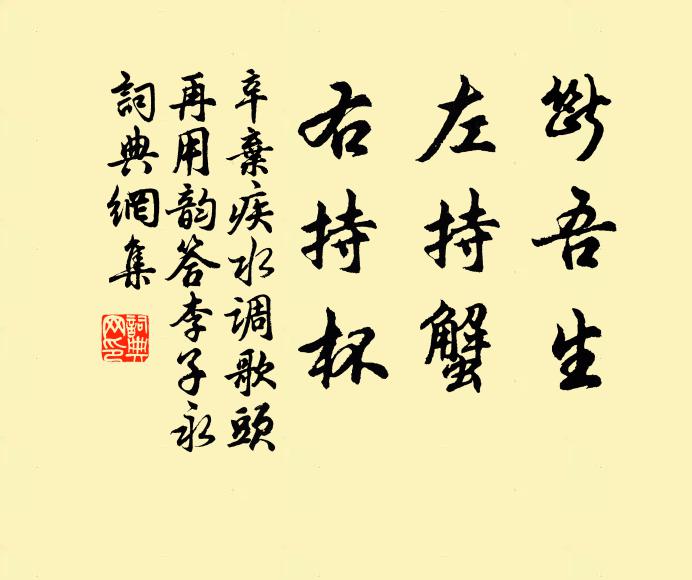 斷吾生
左持蟹
右持杯
辛棄疾水调歌頭
再用韵答李子永
詞典網集
詞典
网印